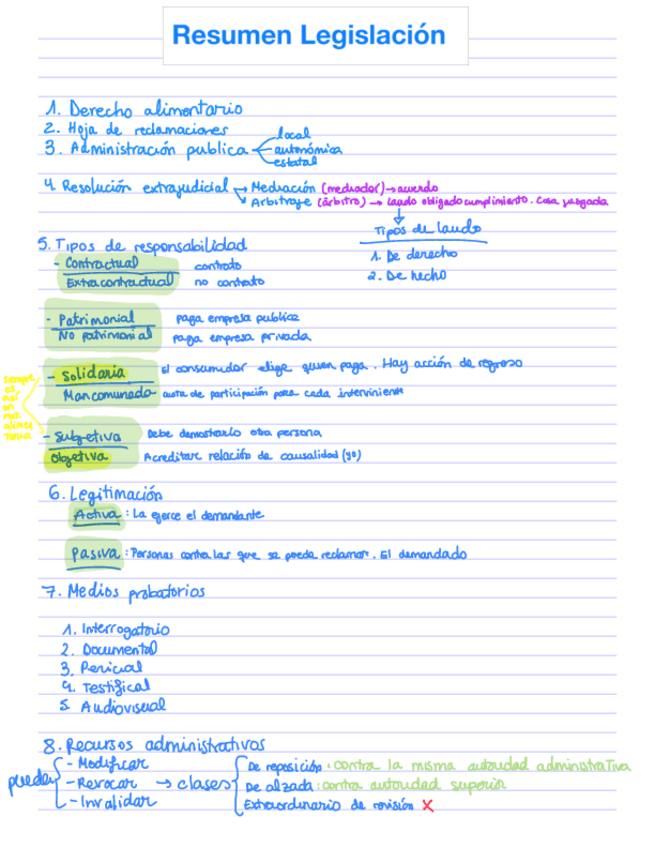 Resumen Legislación
1. Derecho alimentario
2. Hoja de reclamaciones
3. Administración publica
local
autonómica
estatal
4. Resolución extrajudicial → Mediación (mediador) → acuerdo
→ Arbitraje (árbitro) → laudo obligado cumplimiento. Cosa juzgada
Tipos de laudo
1. De derecho
2. De hecho
5. Tipos de responsabilidad
- Contractual contrato
Extracontractual no contrato
- Patrimonial paga empresa publica
No patrimonial paga empresa privada
- Solidaria El consumidor elige quien paga. Hay acción de regreso
Mancomunada cuota de participación para cada interviniente
- Subjetiva Debe demostrarlo otra persona
Objetiva Acreditar relación de causalidad (yo)
6. Legitimación
Activa: La ejerce el demandante
Pasiva: Personas contra las que se pueda reclamar. El demandado
7. Medios probatorios
1. Interrogatorio
2. Documental
3. Pericial
4. Testifical
5. Audiovisual
8. Recursos administrativos
pueden
- Modificar
- Revocar → clases
- Invalidar
De reposición: contra la misma autoridad administrativa
De alzada: contra autoridad superior
Extraordinario de revisión X